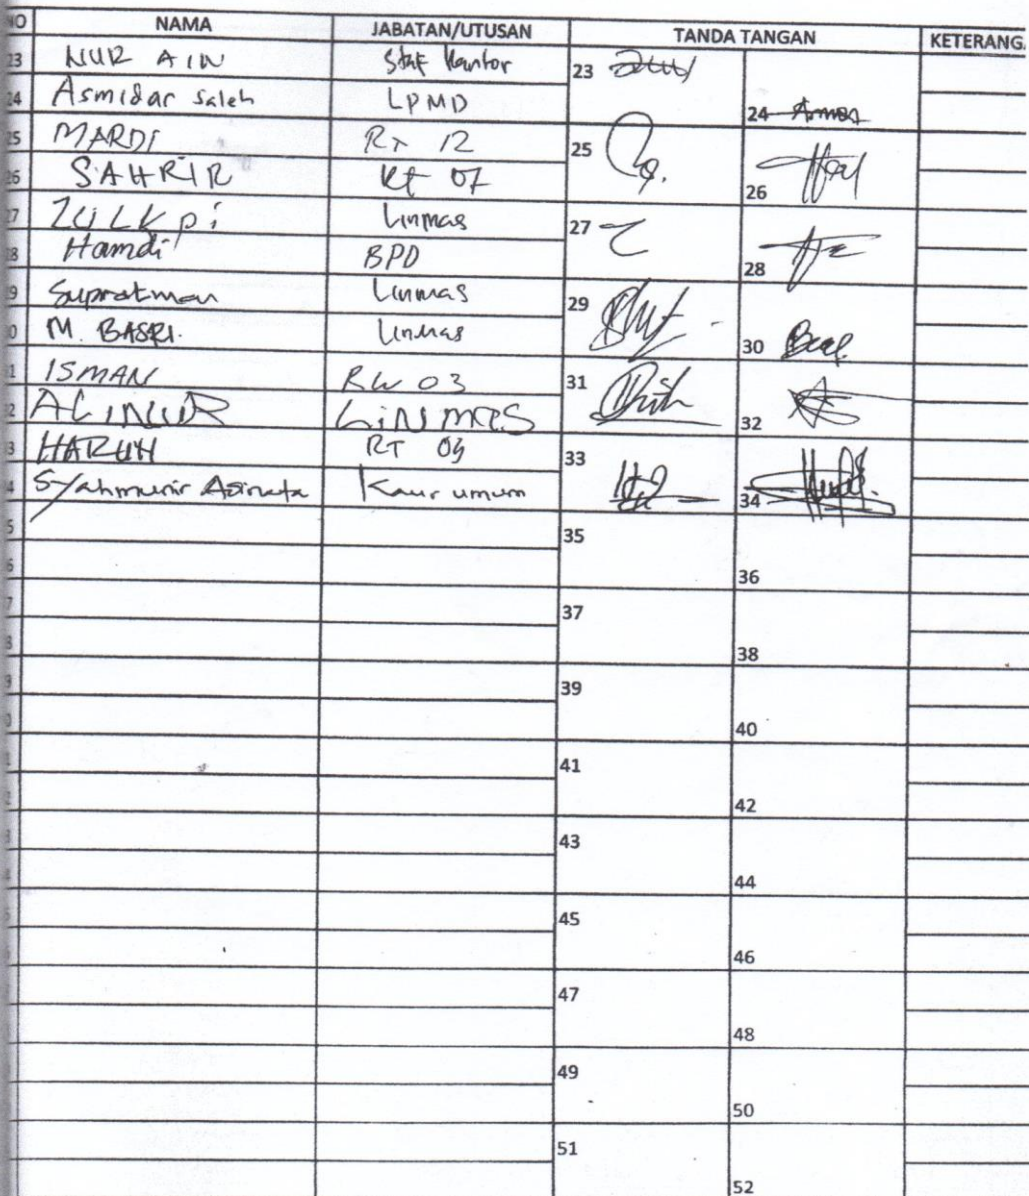 NO NAMA JABATAN/UTUSAN TANDA TANGAN KETERANG
23 NUR AIN Staf Kantor 23
24 Asmidar Saleh LPMD 24
25 MARDI RT 12 25
26 SAHRIR Rt 07 26
27 ZULKpi Linmas 27
28 Hamdi BPD 28
29 Supratman Linmas 29
30 M. BASRI. Linmas 30
31 ISMAN RW 03 31
32 ALINUR LiNmas 32
33 HARUN RT 33
34 Syahmunir Kaur umum 34
35
36
37
38
39
40
41
42
43
44
45
46
47
48
49
50
51
52